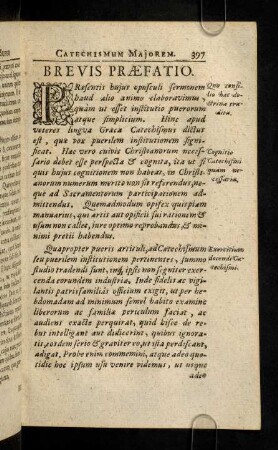 CATECHISMUM MAJOREM. 397
BREVIS PRÆFATIO.
PRæsentis hujus opusculi sermonem
haud alio animo elaboravimus,
quàm ut esset institutio puerorum
atque simplicium. Hinc apud
veteres linguâ Græcâ Catechismus dictus
est, quæ vox puerilem institutionem signi-
ficat. Hæc verò cuivis Christianorum neces-
sariò debet esse perspecta & cognita, ita ut si
quis hujus cognitionem non habeat, in Christi-
anorum numerum meritò non sit referendus, ne-
que ad Sacramentorum participationem ad-
mittendus. Quemadmodum opifex quispiam
manuarius, qui artis aut opificii sui rationem &
usum non callet, jure optimo reprobandus & ni-
minimi pretii habendus.
Quapropter pueri articuli, ad Catechismum
seu puerilem institutionem pertinentes, summo
studio tradendi sunt, inq́; ipsis non segniter exer-
cenda eorundem industria. Inde fidelis ac vigi-
lantis patrisfamiliâs officium exigit, ut per heb-
domadam ad minimum semel habito examine
liberorum ac familiæ periculum faciat, ac
audiens exactè perquirat, quid hisce de re-
bus intelligant aut didicerint, quibus ignora-
tis, eosdem seriò & graviter eò, ut ista perdiscant,
adigat. Probè enim commemini, atque adeo quo-
tidie hoc ipsum usu venire videmus, ut usque
adeo
Quo consi-
lio hæc do-
ctrina tra-
dita.
Cognitio
Catechismi
quàm ne-
cessaria.
Exercitium
docendi Ca-
techismi.